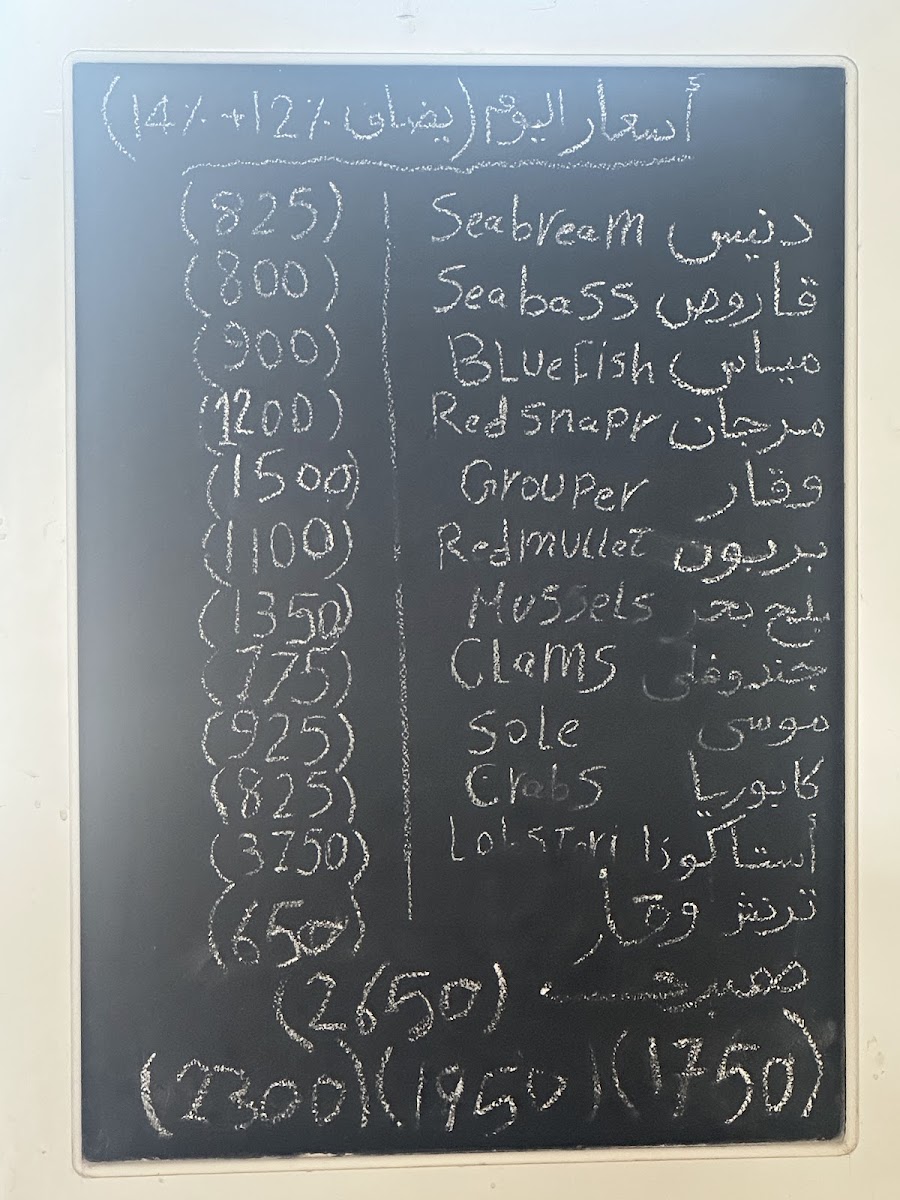 أسعار اليوم (يضاف 12٪ + 14٪)
دنيس Seabream (825)
قاروص Seabass (800)
مياس BLuefish (900)
مرجان Redsnapr (1200)
وقار Grouper (1500)
بربون Redmullet (1100)
بلح بحر Mussels (1350)
جندوفلى CLams (775)
موسى Sole (925)
كابوريا Crabs (825)
أستاكوزا (3750)
ترنش وقار (650)
(2650)
(1750) (1950) (2300)